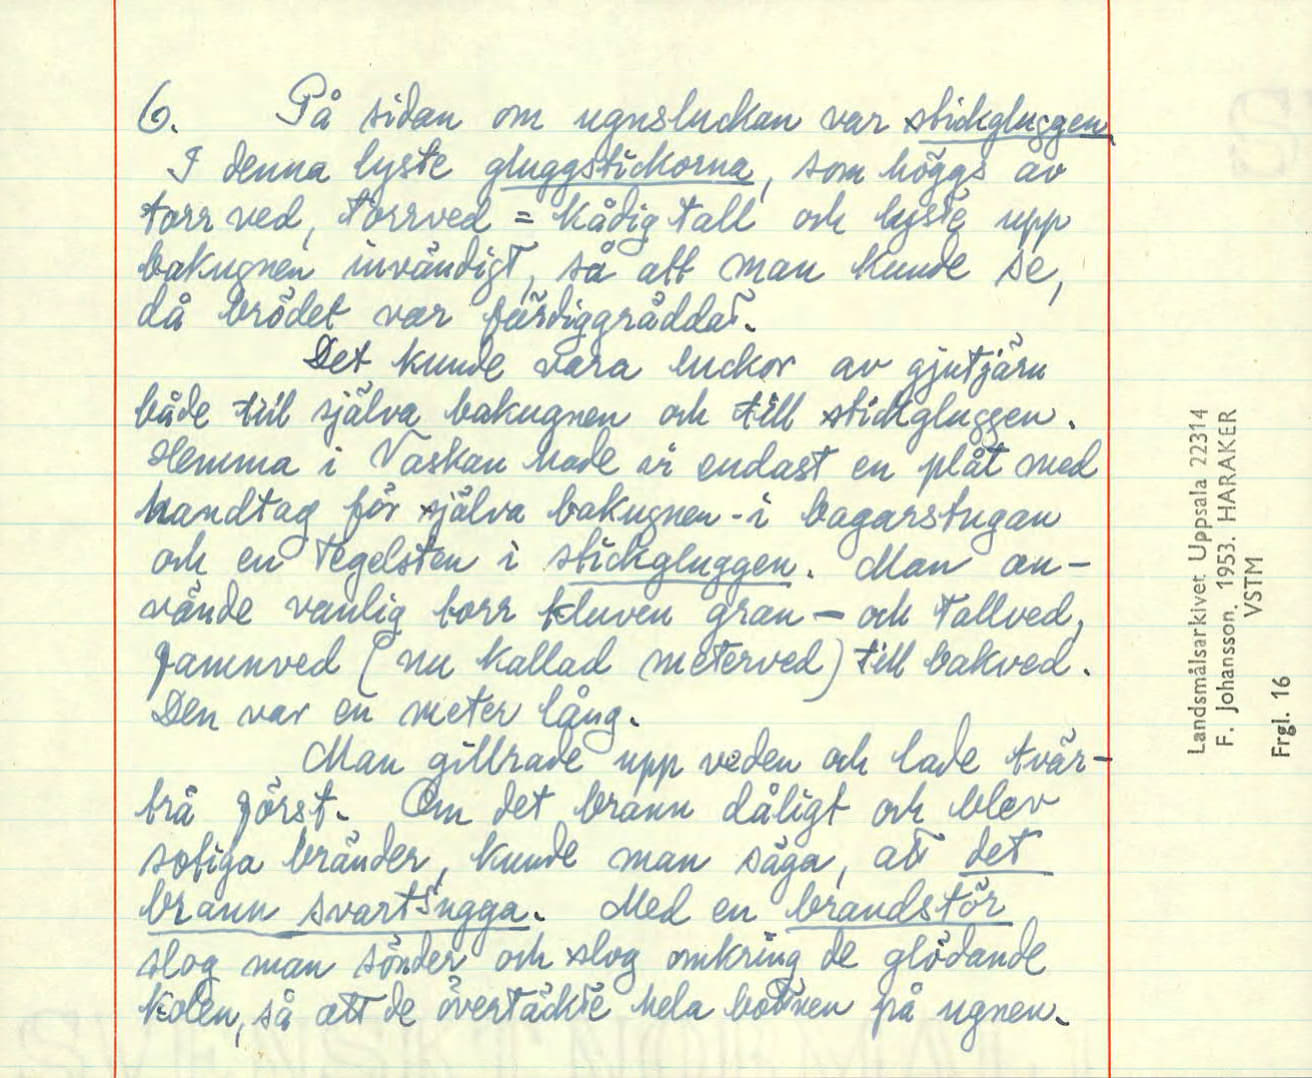 6. På sidan om ugnsluckan var stickgluggen
I denna lyste gluggstickorna, som höggs av
torrved, torrved = kådig tall och lyste upp
bakugnen invändigt, så att man kunde se,
då brödet var färdiggräddat.
Det kunde vara luckor av gjutjärn
både till själva bakugnen och till stickgluggen.
Hemma i Vaskan hade vi endast en plåt med
handtag för själva bakugnen - i bagarstugan
och en tegelsten i stickgluggen. Man an-
vände vanlig torr kluven gran – och tallved,
famnved (nu kallad meterved) till bakved.
Den var en meter lång.
Man gillrade upp veden och lade tvär-
trä först. Om det brann dåligt och blev
sotiga bränder, kunde man säga, att det
brann svartsugga. Med en brandstör
slog man sönder och slog omkring de glödande
kolen, så att de övertäckte hela bottnen på ugnen.
Landsmålsarkivet Uppsala 22314
F. Johansson. 1953. HARAKER
VSTM
Frgl. 16